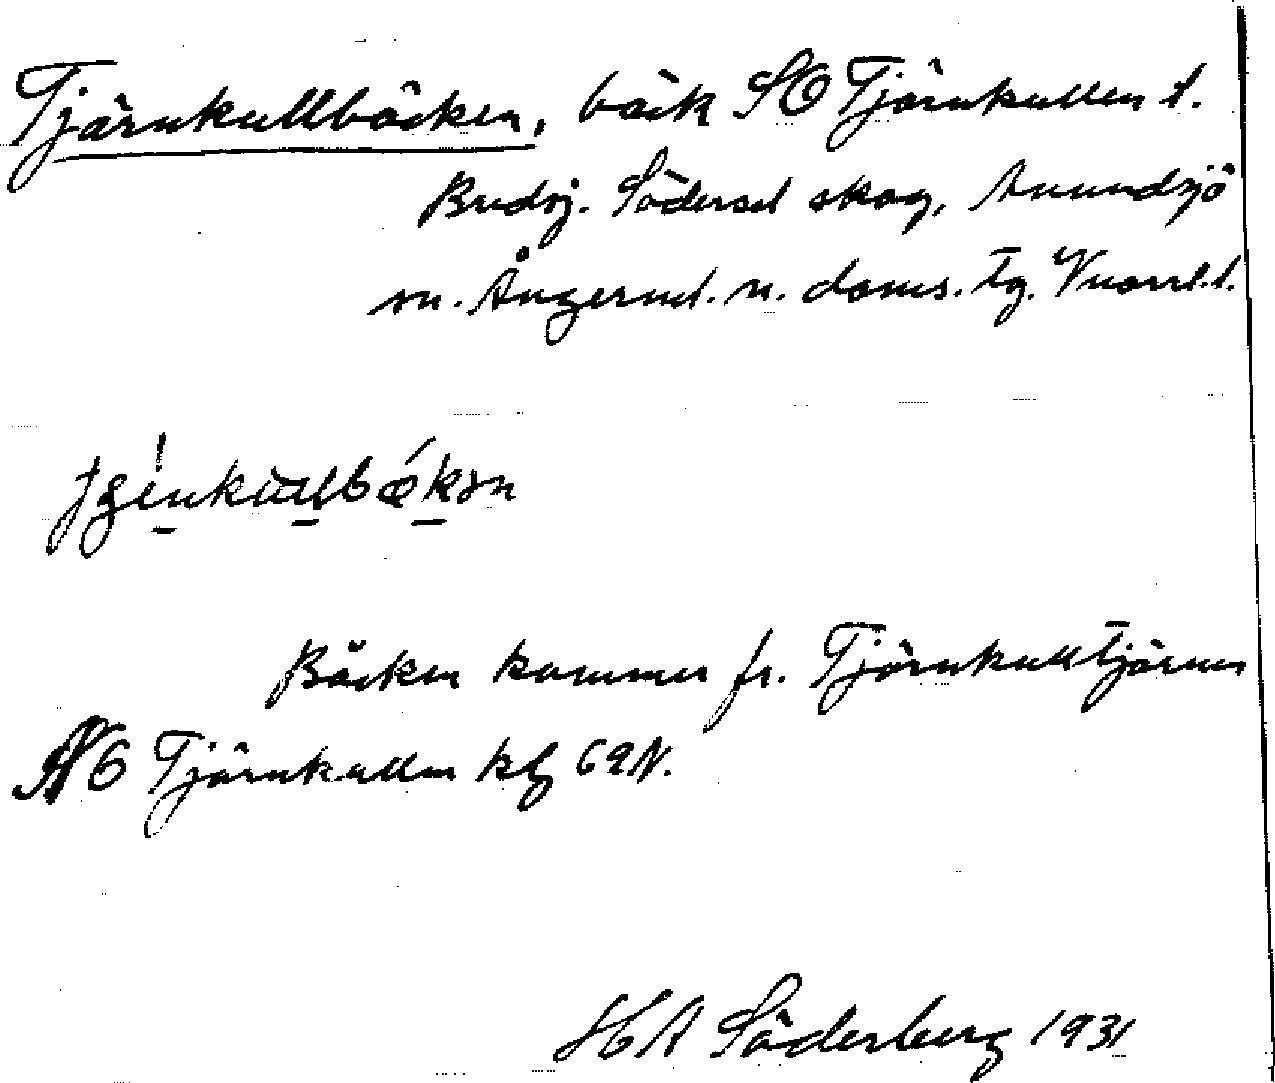 Tjärnkullbäcken, bäck SO Tjärnkullen t.
Bredsj. Södersel skog, Anundsjö
sn. Ångerml. n. doms. tg. Vnorrl.l.
Bäcken kommer fr. Tjärnkulltjärnen
NO Tjärnkullen kbl 62N.
HA Söderberg 1931